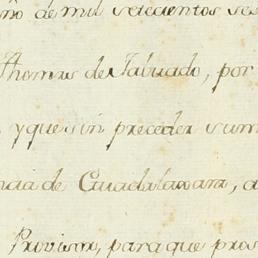 año de mil setecientos ses
Thomas de Tabuado, por
y que sin preceder sum
ncia de Guadalaxara, a
Provisor, para que pros